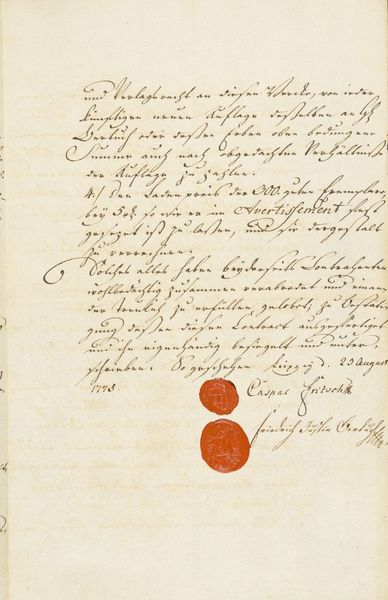 und Verlagsrecht an diesem Wercke, von jeder
künftigen neuen Auflage desselben an H.
Bertuch oder dessen Erben oben bedungene
Summe auch nach obgedachten Verhältniß
der Auflage zu zahlen.
4.) Den Ladenpreis der 300 guten Exemplare
bey 5 so wie er im Avertissement fest
gesezet ist zu lassen, und sie dergestalt
zu verrechnen.
Solches alles haben beyderseits Contrahenten
wohlbedächtig zusammen verabredet und einan
der treulich zu erfüllen, gelobet, zu Bestäti
gung dessen diesen Contract ausgefertiget
und ihn eigenhändig besiegelt und unter
schrieben. So geschehen Leipzig d. 23 August
1775.
Caspar Fritsch
Friedrich Justin Bertuch